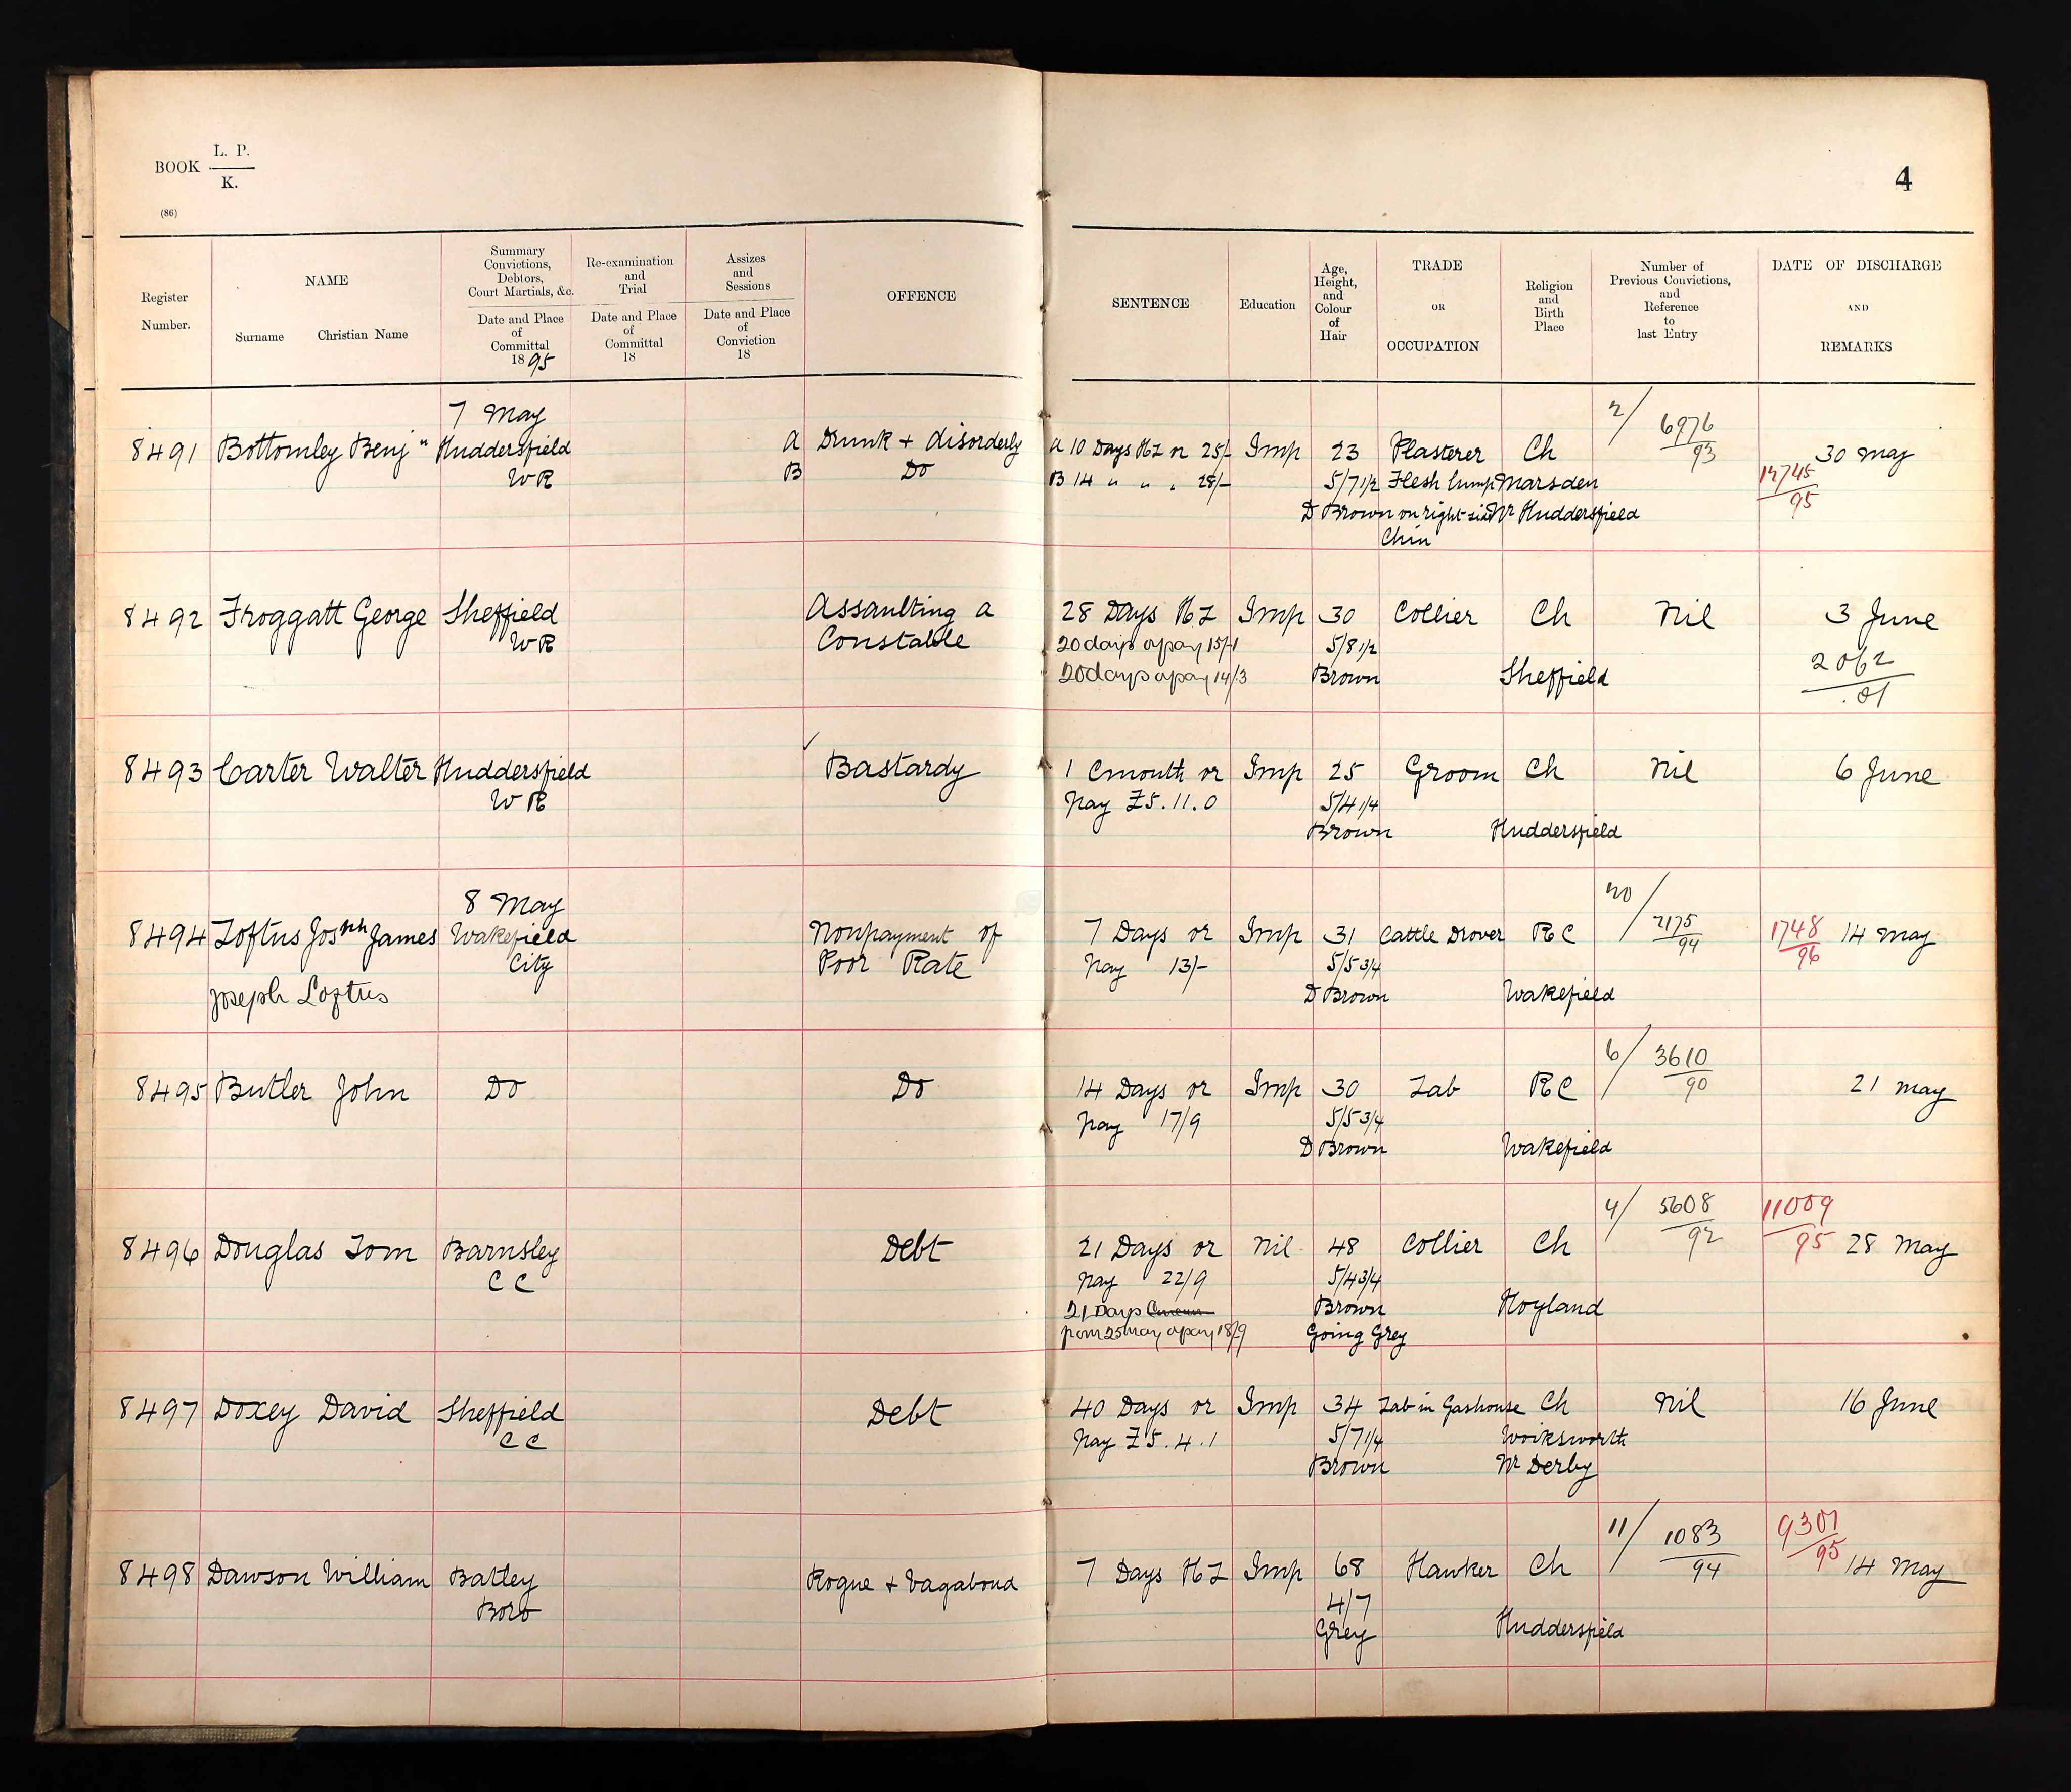 BOOK L. P.
K.
(86)
4
Register
Number.
NAME
Surname Christian Name
Summary
Convictions,
Debtors,
Court Martials, &c.
Date and Place
of
Committal
1895
Re-examination
and
Trial
Date and Place
of
Committal
18
Assizes
and
Sessions
Date and Place
of
Conviction
18
OFFENCE
SENTENCE
Education
Age,
Height,
and
Colour
of
Hair
TRADE
OR
OCCUPATION
Religion
and
Birth
Place
Number of
Previous Convictions,
and
Reference
to
last Entry
DATE OF DISCHARGE
AND
REMARKS
7 May
8491 Bottomley Benj" Huddersfield
WR
A Drunk + disorderly
B Do
A 10 Days HL or 25/-
B 14 " " " 28/-
Imp
23
5/7 1/2
D Brown
Plasterer
Flesh lump
on right side
Chin
Ch
Marsden
Nr Huddersfield
2/ 6976
93
30 May
95
8492 Froggatt George Sheffield
WR
Assaulting a
Constable
28 Days HL
20 days or pay 15/1
20 days or pay 14/3
Imp
30
5/8 1/2
Brown
Collier
Ch
Sheffield
Nil
3 June
2062
01
8493 Carter Walter Huddersfield
WR
Bastardy
1 Cmonth or
Pay £5.11.0
Imp
25
5/4 1/4
Brown
Groom
Ch
Huddersfield
Nil
6 June
8 May
8494 Loftus Josph James Wakefield
City
Joseph Loftus
Nonpayment of
Poor Rate
7 Days or
Pay 13/-
Imp
31
5/5 3/4
D Brown
Cattle Drover
RC
Wakefield
20/ 2175
94
1748
96
14 May
8495 Butler John Do
Do
14 Days or
Pay 17/9
Imp
30
5/5 3/4
D Brown
Lab
RC
Wakefield
6/ 3610
90
21 May
8496 Douglas Tom Barnsley
CC
Debt
21 Days or
Pay 22/9
21 Days
from 25 May or pay 18/9
Nil
48
5/4 3/4
Brown
Going Grey
Collier
Ch
Hoyland
4/ 5608
92
11009
95
28 May
8497 Doxey David Sheffield
CC
Debt
40 Days or
Pay £5.4.1
Imp
34
5/7 1/4
Brown
Lab in Gashouse
Ch
Woiksworth
Nr Derby
Nil
16 June
8498 Dawson William Batley
Boro
Rogue + Vagabond
7 Days HL
Imp
68
4/7
Grey
Hawker
Ch
Huddersfield
11/ 1083
94
9307
95
14 May